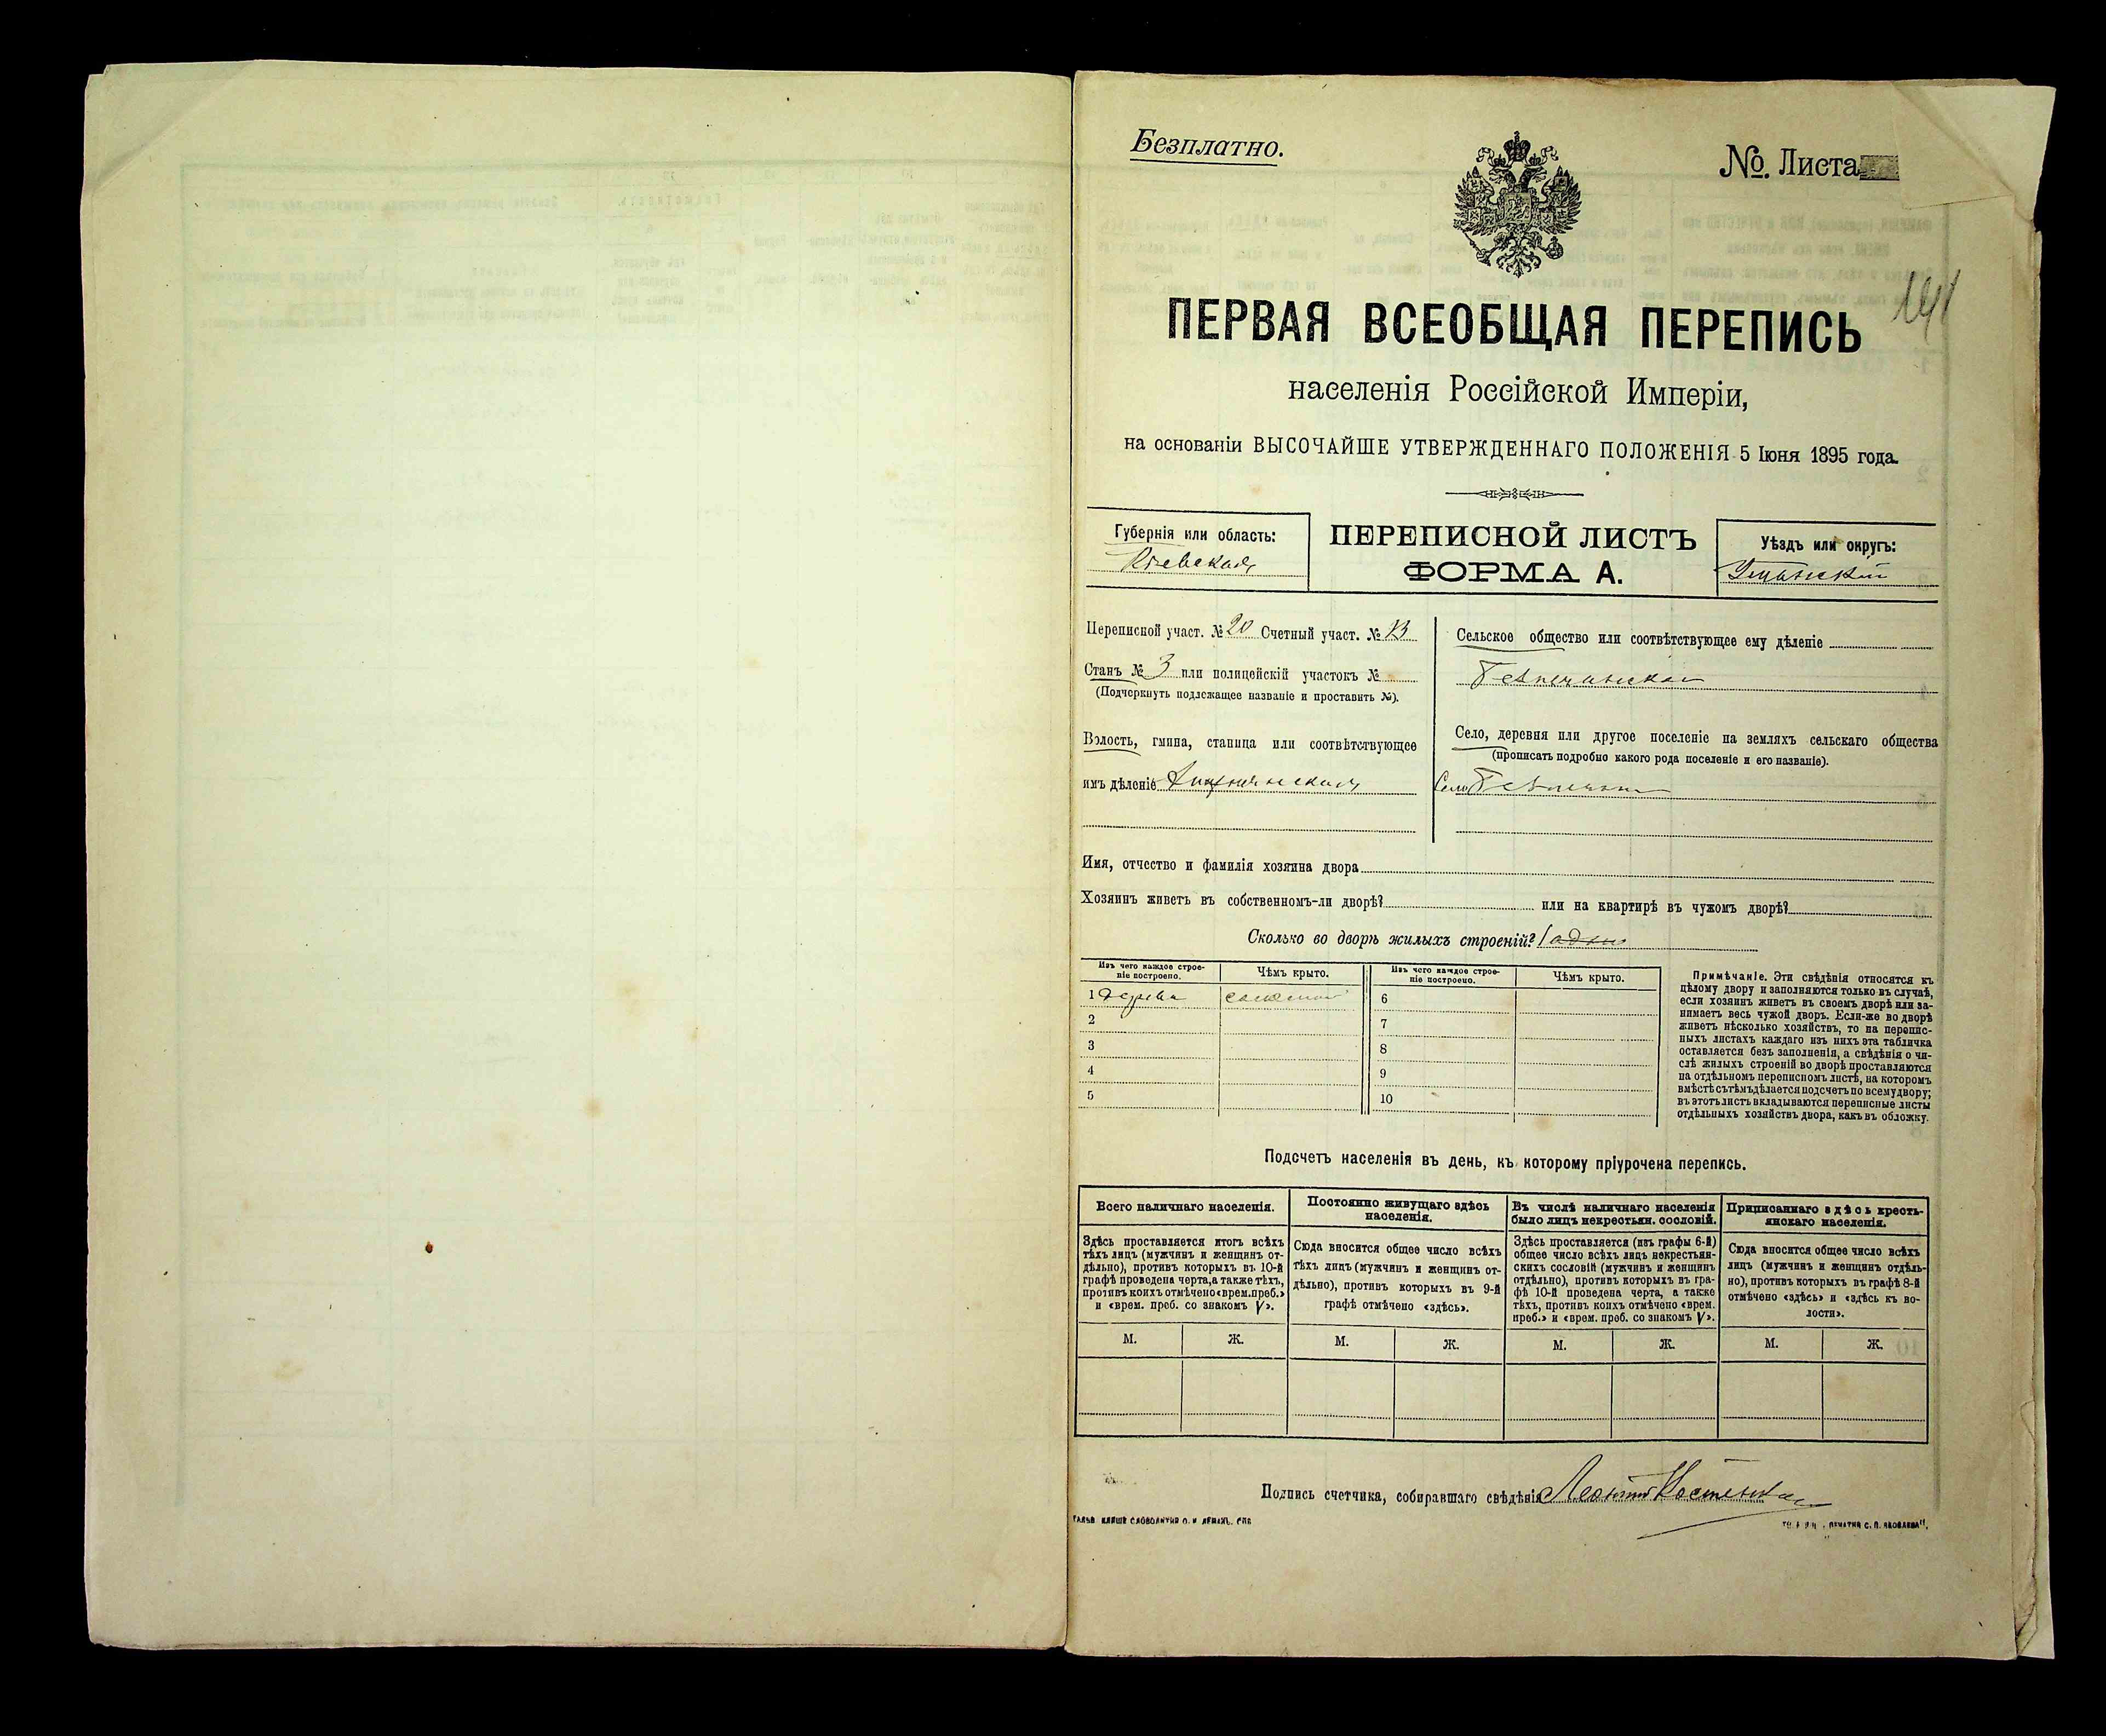 Безплатно.
№. Листа
141
ПЕРВАЯ ВСЕОБЩАЯ ПЕРЕПИСЬ
населенія Россійской Имперіи,
на основаніи ВЫСОЧАЙШЕ УТВЕРЖДЕННАГО ПОЛОЖЕНІЯ 5 Іюня 1895 года.
Губернія или область:
Кіевская
ПЕРЕПИСНОЙ ЛИСТЪ
ФОРМА А.
Уѣздъ или округъ:
Уманскій
Переписной участ. № 20 Счетный участ. № 13
Станъ № 3 или полицейскій участокъ №
(Подчеркнуть подлежащее названіе и проставить №).
Волость, гмина, станица или соотвѣтствующее
имъ дѣленіе
Сельское общество или соотвѣтствующее ему дѣленіе
Село, деревня или другое поселеніе на земляхъ сельскаго общества
(прописать подробно какого рода поселеніе и его названіе).
Село
Имя, отчество и фамилія хозяина двора
Хозяинъ живетъ въ собственномъ-ли дворѣ? или на квартирѣ въ чужомъ дворѣ?
Сколько во дворѣ жилыхъ строеній? 1 один
Изъ чего каждое строе-
ніе построено.
Чѣмъ крыто.
1 дерева соломой
2
3
4
5
Изъ чего каждое строе-
ніе построено.
Чѣмъ крыто.
6
7
8
9
10
Примѣчаніе. Эти свѣдѣнія относятся къ
цѣлому двору и заполняются только въ случаѣ,
если хозяинъ живетъ въ своемъ дворѣ или за-
нимаетъ весь чужой дворъ. Если-же во дворѣ
живетъ нѣсколько хозяйствъ, то на перепис-
ныхъ листахъ каждаго изъ нихъ эта табличка
оставляется безъ заполненія, а свѣдѣнія о чи-
слѣ жилыхъ строеній во дворѣ проставляются
на отдѣльномъ переписномъ листѣ, на которомъ
вмѣстѣ съ тѣмъ дѣлается подсчетъ по всему двору;
въ этотъ листъ вкладываются переписные листы
отдѣльныхъ хозяйствъ двора, какъ въ обложку.
Подсчетъ населенія въ день, къ которому пріурочена перепись.
Всего наличнаго населенія.
Здѣсь проставляется итогъ всѣхъ
тѣхъ лицъ (мужчинъ и женщинъ от-
дѣльно), противъ которыхъ въ 10-й
графѣ проведена черта, а также тѣхъ,
противъ коихъ отмѣчено «врем. преб.»
и «врем. преб. со знакомъ V».
М. Ж.
Постоянно живущаго здѣсь
населенія.
Сюда вносится общее число всѣхъ
тѣхъ лицъ (мужчинъ и женщинъ от-
дѣльно), противъ которыхъ въ 9-й
графѣ отмѣчено «здѣсь».
М. Ж.
Въ числѣ наличнаго населенія
было лицъ некрестьян. сословій.
Здѣсь проставляется (изъ графы 6-й)
общее число всѣхъ лицъ некрестьян-
скихъ сословій (мужчинъ и женщинъ
отдѣльно), противъ которыхъ въ гра-
фѣ 10-й проведена черта, а также
тѣхъ, противъ коихъ отмѣчено «врем.
преб.» и «врем. преб. со знакомъ V».
М. Ж.
Приписаннаго здѣсь кресть-
янскаго населенія.
Сюда вносится общее число всѣхъ
лицъ (мужчинъ и женщинъ отдѣль-
но), противъ которыхъ въ графѣ 8-й
отмѣчено «здѣсь» и «здѣсь къ во-
лости».
М. Ж.
Подпись счетчика, собиравшаго свѣдѣнія Леонтій Костенко